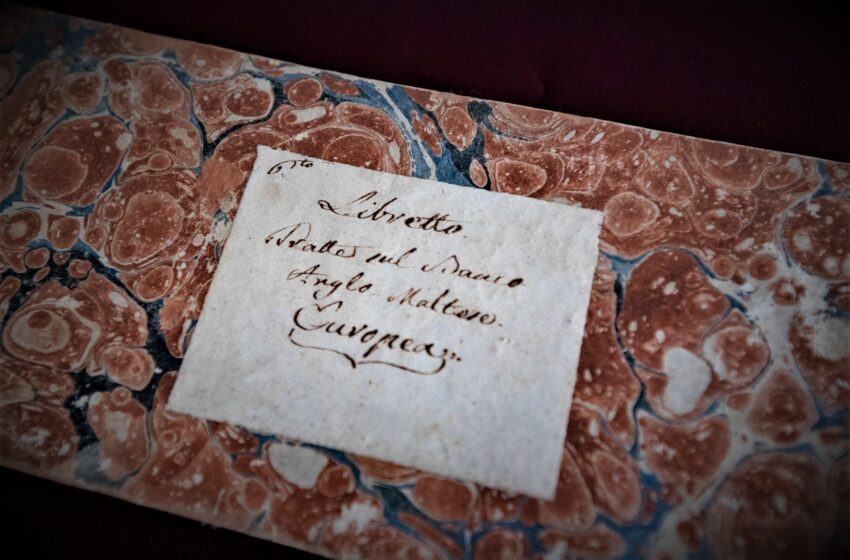 6.to
Libretto.
Tratte sul Banco
Anglo-Maltese.
Europea